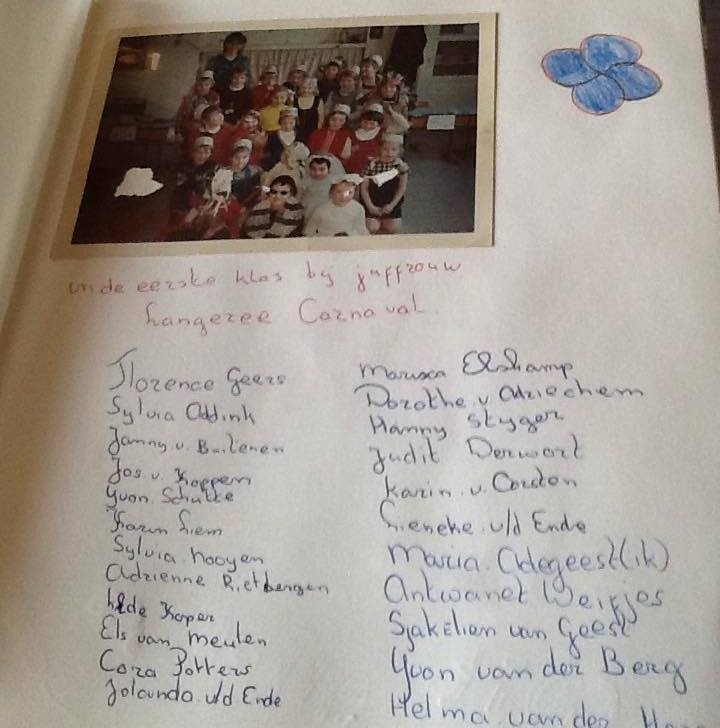 in de eerste klas bij juffrouw
Langezee Carnaval.
Florence Geers
Sylvia Addink
Janny v. Buitenen
Jos v. Koppen
Yvon. Schulte
Karin Siem
Sylvia. Nooyen
Adrienne Rietbergen
Koper
Els van Meulen
Cora Potters
Jolanda v/d Ende
Marisca Elskamp
Dorothe v. Adriechem
Hanny Styger
Judit Derwort
Karin. v.
Lieneke v/d Ende
Maria. Adegeest (ik)
Antwanet Weirjes
Sjakelien van Geest
Yvon van der Berg
Helma van der